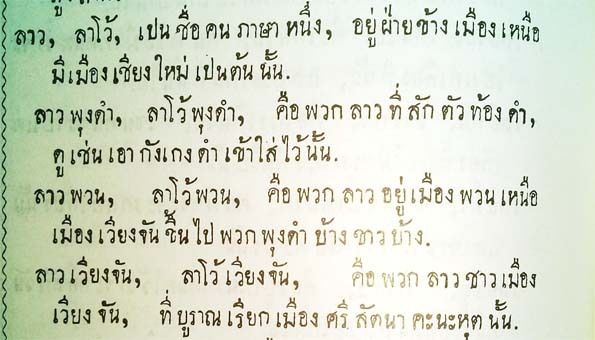 ลาว, ลาโว้, เปน ชื่อ คน ภาษา หนึ่ง, อยู่ ฝ่าย ข้าง เมือง เหนือ
มีเมือง เชียงใหม่ เปนต้น นั้น.
ลาว พุงดำ, ลาโว้ พุงดำ, คือ พวก ลาว ที่ สัก ตัว ท้อง ดำ,
ดู เช่น เอา กังเกง ดำ เข้า ใส่ ไว้ นั้น.
ลาว พวน, ลาโว้ พวน, คือ พวก ลาว อยู่ เมือง พวน เหนือ
เมือง เวียงจัน ขึ้น ไป พวก พุงดำ บ้าง ขาว บ้าง.
ลาว เวียงจัน, ลาโว้ เวียงจัน, คือ พวก ลาว ชาว เมือง
เวียง จัน, ที่ บูราณ เรียก เมือง ศรี สัตนา คะนะหุต นั้น.